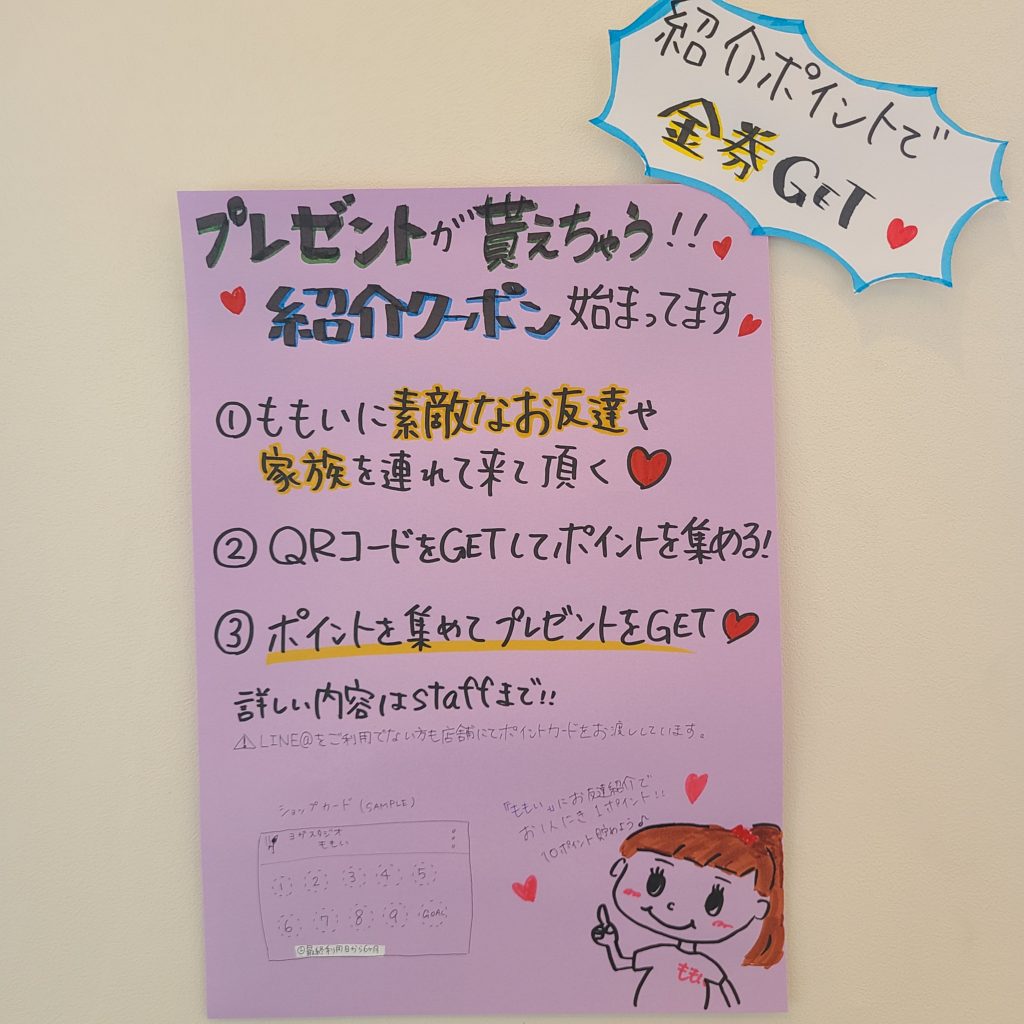 紹介ポイントで
金券GET
プレゼントが貰えちゃう!!
紹介クーポン始まってます
①ももいに素敵なお友達や
家族を連れて来て頂く
②QRコードをGETしてポイントを集める!
③ポイントを集めてプレゼントをGET
詳しい内容はstaffまで!!
⚠LINE@をご利用でない方も店舗にてポイントカードをお渡ししています。
ショップカード(SAMPLE)
ヨガスタジオ
ももい
1 2 3 4 5
6 7 8 9 GOAL
最終利用日から6ヶ月
『ももい』にお友達紹介で
お1人につき1ポイント!!
10ポイント貯めよう♪
ももい